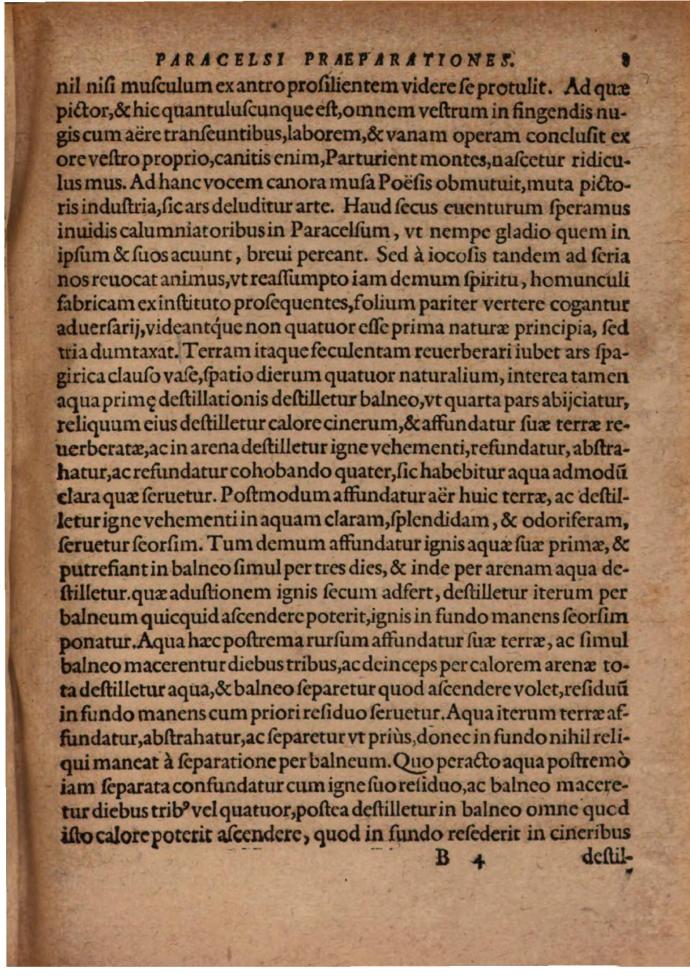 PARACELSI PRAEPARATIONES. 8
nil nisi musculum ex antro prosilientem videre se protulit. Ad quæ
pictor,& hic quantuluscunque est,omnem vestrum in fingendis nu-
gis cum aëre transeuntibus,laborem,& vanam operam conclusit ex
ore vestro proprio,canitis enim,Parturient montes,nascetur ridicu-
lus mus. Ad hanc vocem canora musa Poësis obmutuit,muta picto-
ris industria,sic ars deluditur arte. Haud secus euenturum speramus
inuidis calumniatoribus in Paracelsum, vt nempe gladio quem in
ipsum & suos acuunt, breui pereant. Sed à iocosis tandem ad seria
nos reuocat animus,vt reassumpto iam demum spiritu, homunculi
fabricam ex instituto prosequentes,folium pariter vertere cogantur
aduersarij,videantq́ue non quatuor esse prima naturæ principia, sed
tria dumtaxat. Terram itaque feculentam reuerberari iubet ars spa-
girica clauso vase,spatio dierum quatuor naturalium, interea tamen
aqua primę destillationis destilletur balneo,vt quarta pars abijciatur,
reliquum eius destilletur calore cinerum,& affundatur suæ terræ re-
uerberatæ,ac in arena destilletur igne vehementi,refundatur, abstra-
hatur,ac refundatur cohobando quater,sic habebitur aqua admodū
clara quæ seruetur. Postmodum affundatur aër huic terræ, ac destil-
letur igne vehementi in aquam claram,splendidam, & odoriferam,
seruetur seorsim. Tum demum affundatur ignis aquæ suæ primæ, &
putrefiant in balneo simul per tres dies, & inde per arenam aqua de-
stilletur.quæ adustionem ignis secum adfert, destilletur iterum per
balneum quicquid ascendere poterit,ignis in fundo manens seorsim
ponatur.Aqua hæc postrema rursum affundatur suæ terræ, ac simul
balneo macerentur diebus tribus,ac deinceps per calorem arenæ to-
ta destilletur aqua,& balneo separetur quod ascendere volet,residuū
in fundo manens cum priori residuo seruetur.Aqua iterum terræ af-
fundatur,abstrahatur,ac separetur vt priùs,donec in fundo nihil reli-
qui maneat à separatione per balneum.Quo peracto aqua postremò
iam separata confundatur cum igne suo residuo,ac balneo macere-
tur diebus tribꝰ vel quatuor,postea destilletur in balneo omne quod
isto calore poterit ascendere, quod in fundo resederit in cineribus
B 4 destil-